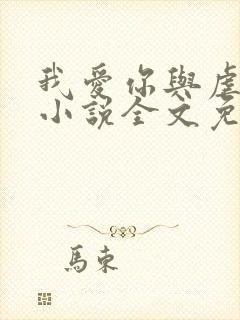 我愛你與虐
小說全文免
馬東